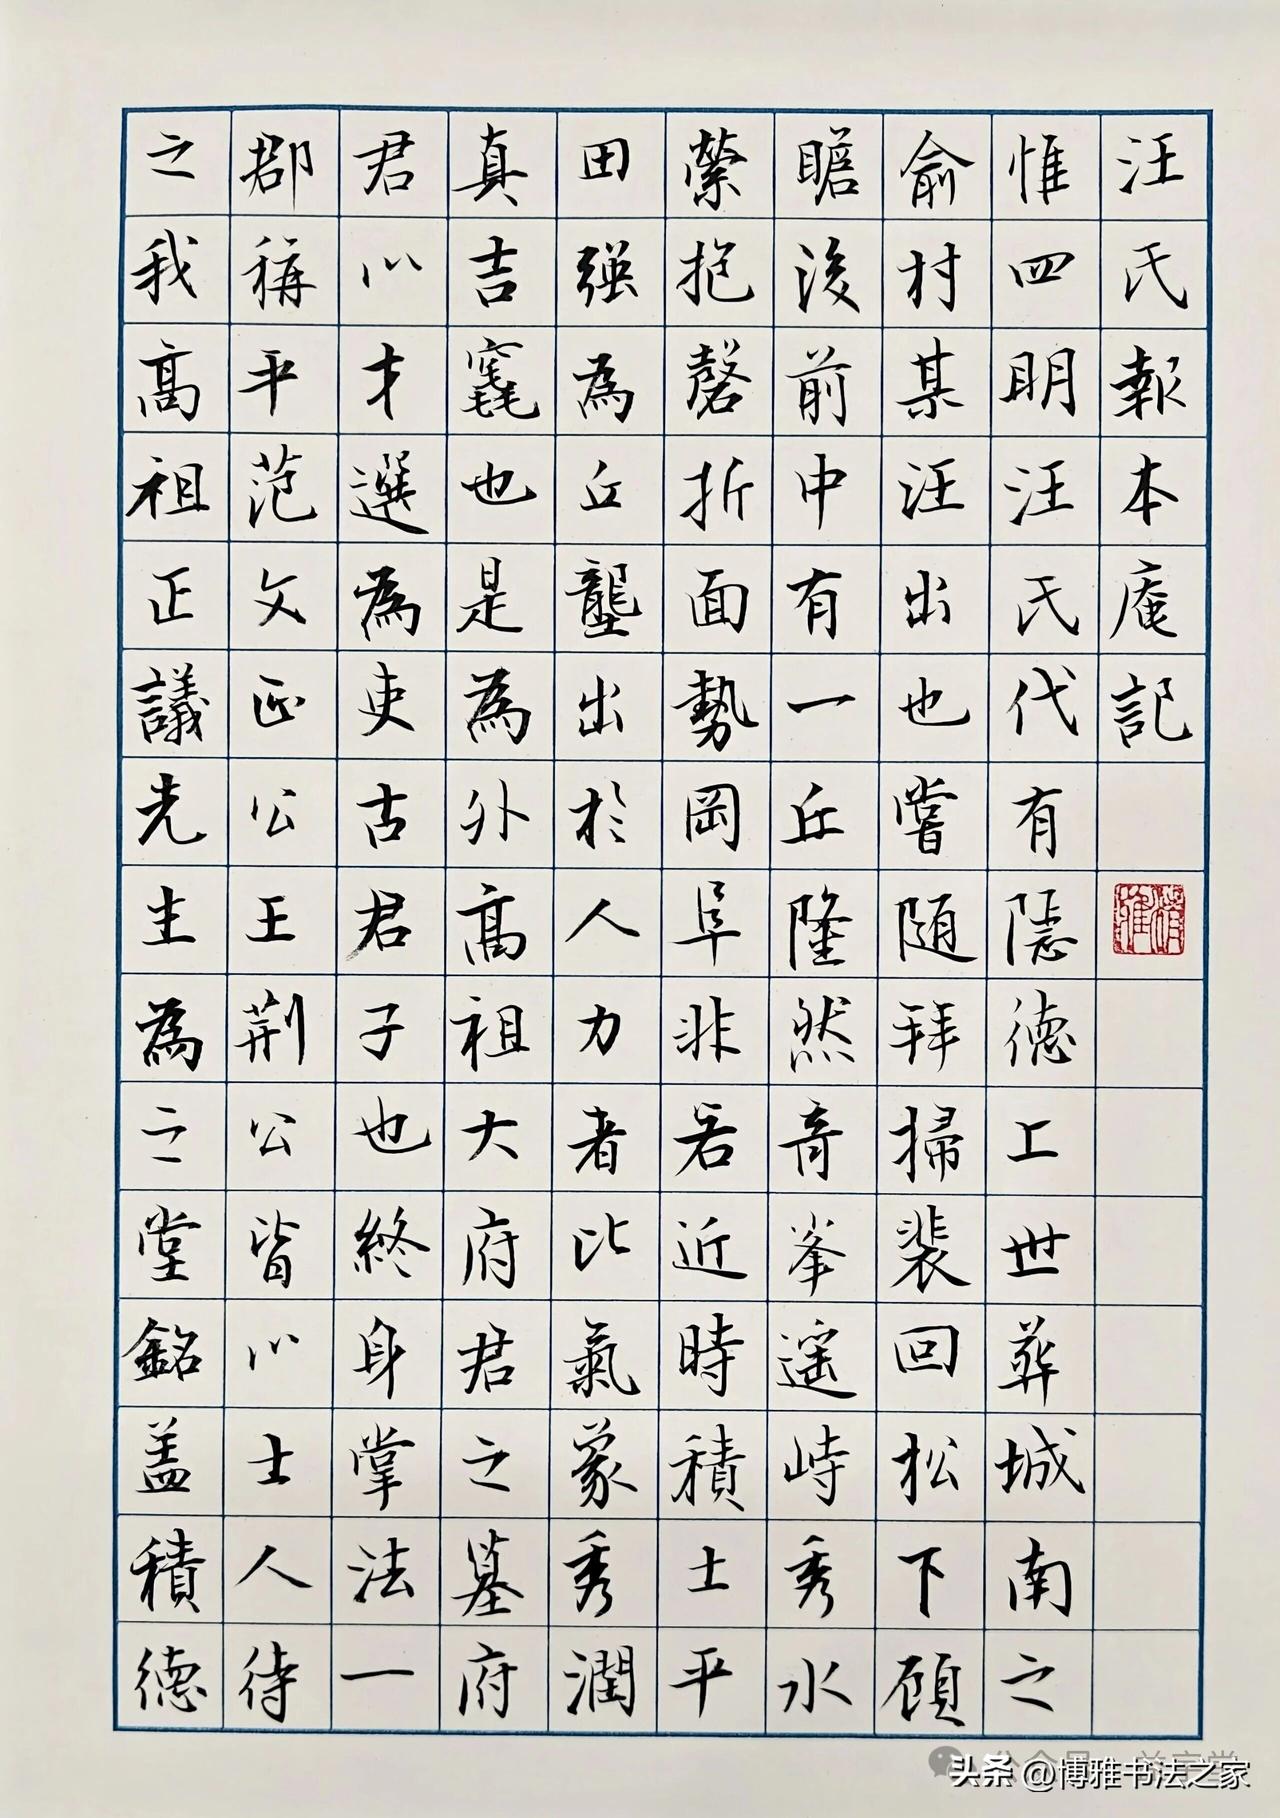 汪氏報本庵記
惟四明汪氏代有隱德上世葬城南之
俞村某汪出也嘗隨拜掃裴回松下顧
瞻後前中有一丘隆然奇峯遥峙秀水
縈抱磬折面勢岡阜非若近時積土平
田强為丘壟出於人力者比氣象秀潤
真吉竁也是為外高祖大府君之墓府
君以才選為吏古君子也終身掌法一
郡稱平范文正公王荆公皆以士人待
之我高祖正議先生為之堂銘盖積德
头条 @博雅书法之家